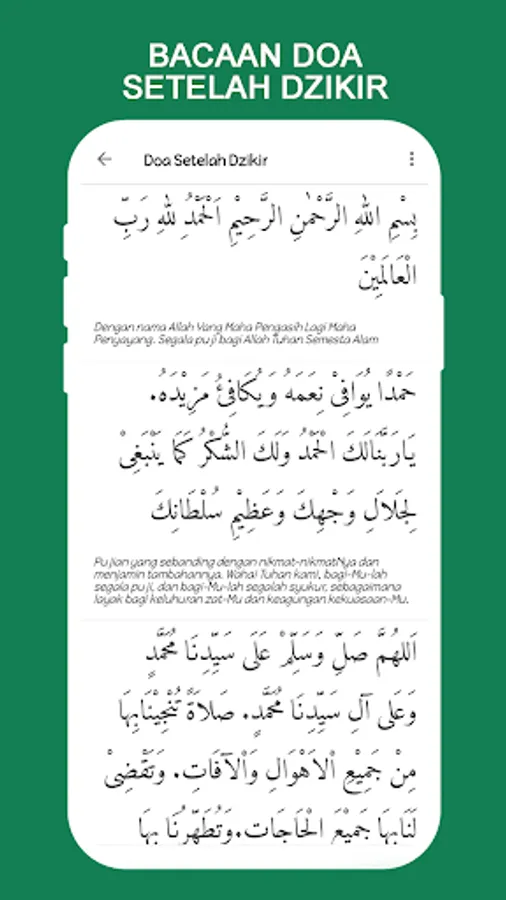 BACAAN DOA
SETELAH DZIKIR
Doa Setelah Dzikir
بِسْمِ اللهِ الرَّحْمٰنِ الرَّحِيْمِ اَلْحَمْدُ لِلهِ رَبِّ
الْعَالَمِيْنَ
Dengan nama Allah Yang Maha Pengasih Lagi Maha
Penyayang. Segala puji bagi Allah Tuhan Semesta Alam
حَمْدًا يُوَافِىْ نِعَمَهُ وَيُكَافِئُ مَزِيْدَهُ.
يَارَبَّنَالَكَ الْحَمْدُ وَلَكَ الشُّكْرُ كَمَا يَنْبَغِىْ
لِجَلَالِ وَجْهِكَ وَعَظِيْمِ سُلْطَانِكَ
Pujian yang sebanding dengan nikmat-nikmatNya dan
menjamin tambahannya. Wahai Tuhan kami, bagi-Mu-lah
segala puji, dan bagi-Mu-lah segalah syukur, sebagaimana
layak bagi keluhuran zat-Mu dan keagungan kekuasaan-Mu.
اَللهُمَّ صَلِّ وَسَلِّمْ عَلَى سَيِّدِنَا مُحَمَّدٍ
وَعَلَى آلِ سَيِّدِنَا مُحَمَّدٍ. صَلاَةً تُنْجِيْنَابِهَا
مِنْ جَمِيْعِ اْلاَهْوَالِ وَاْلآفَاتِ. وَتَقْضِىْ
لَنَابِهَا جَمِيْعَ الْحَاجَاتِ.وَتُطَهِّرُنَا بِهَا